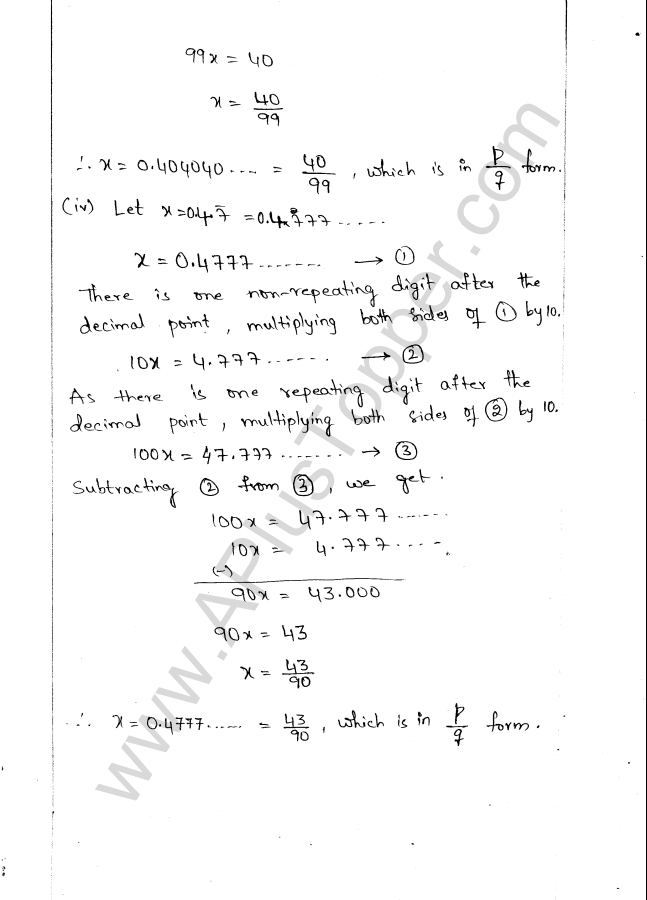 99x = 40
x = 40/99
∴ x = 0.404040.... = 40/99 , which is in p/q form.
(iv) Let x=0.47̄ =0.4777.....
x = 0.4777....... → ①
There is one non-repeating digit after the
decimal point , multiplying both sides of ① by 10.
10x = 4.777...... → ②
As there is one repeating digit after the
decimal point , multiplying both sides of ② by 10.
100x = 47.777....... → ③
Subtracting ② from ③, we get.
100x = 47.777......
10x = 4.777....
(-)
90x = 43.000
90x = 43
x = 43/90
∴ x = 0.4777...... = 43/90 , which is in p/q form.
www.APlusTopper.com